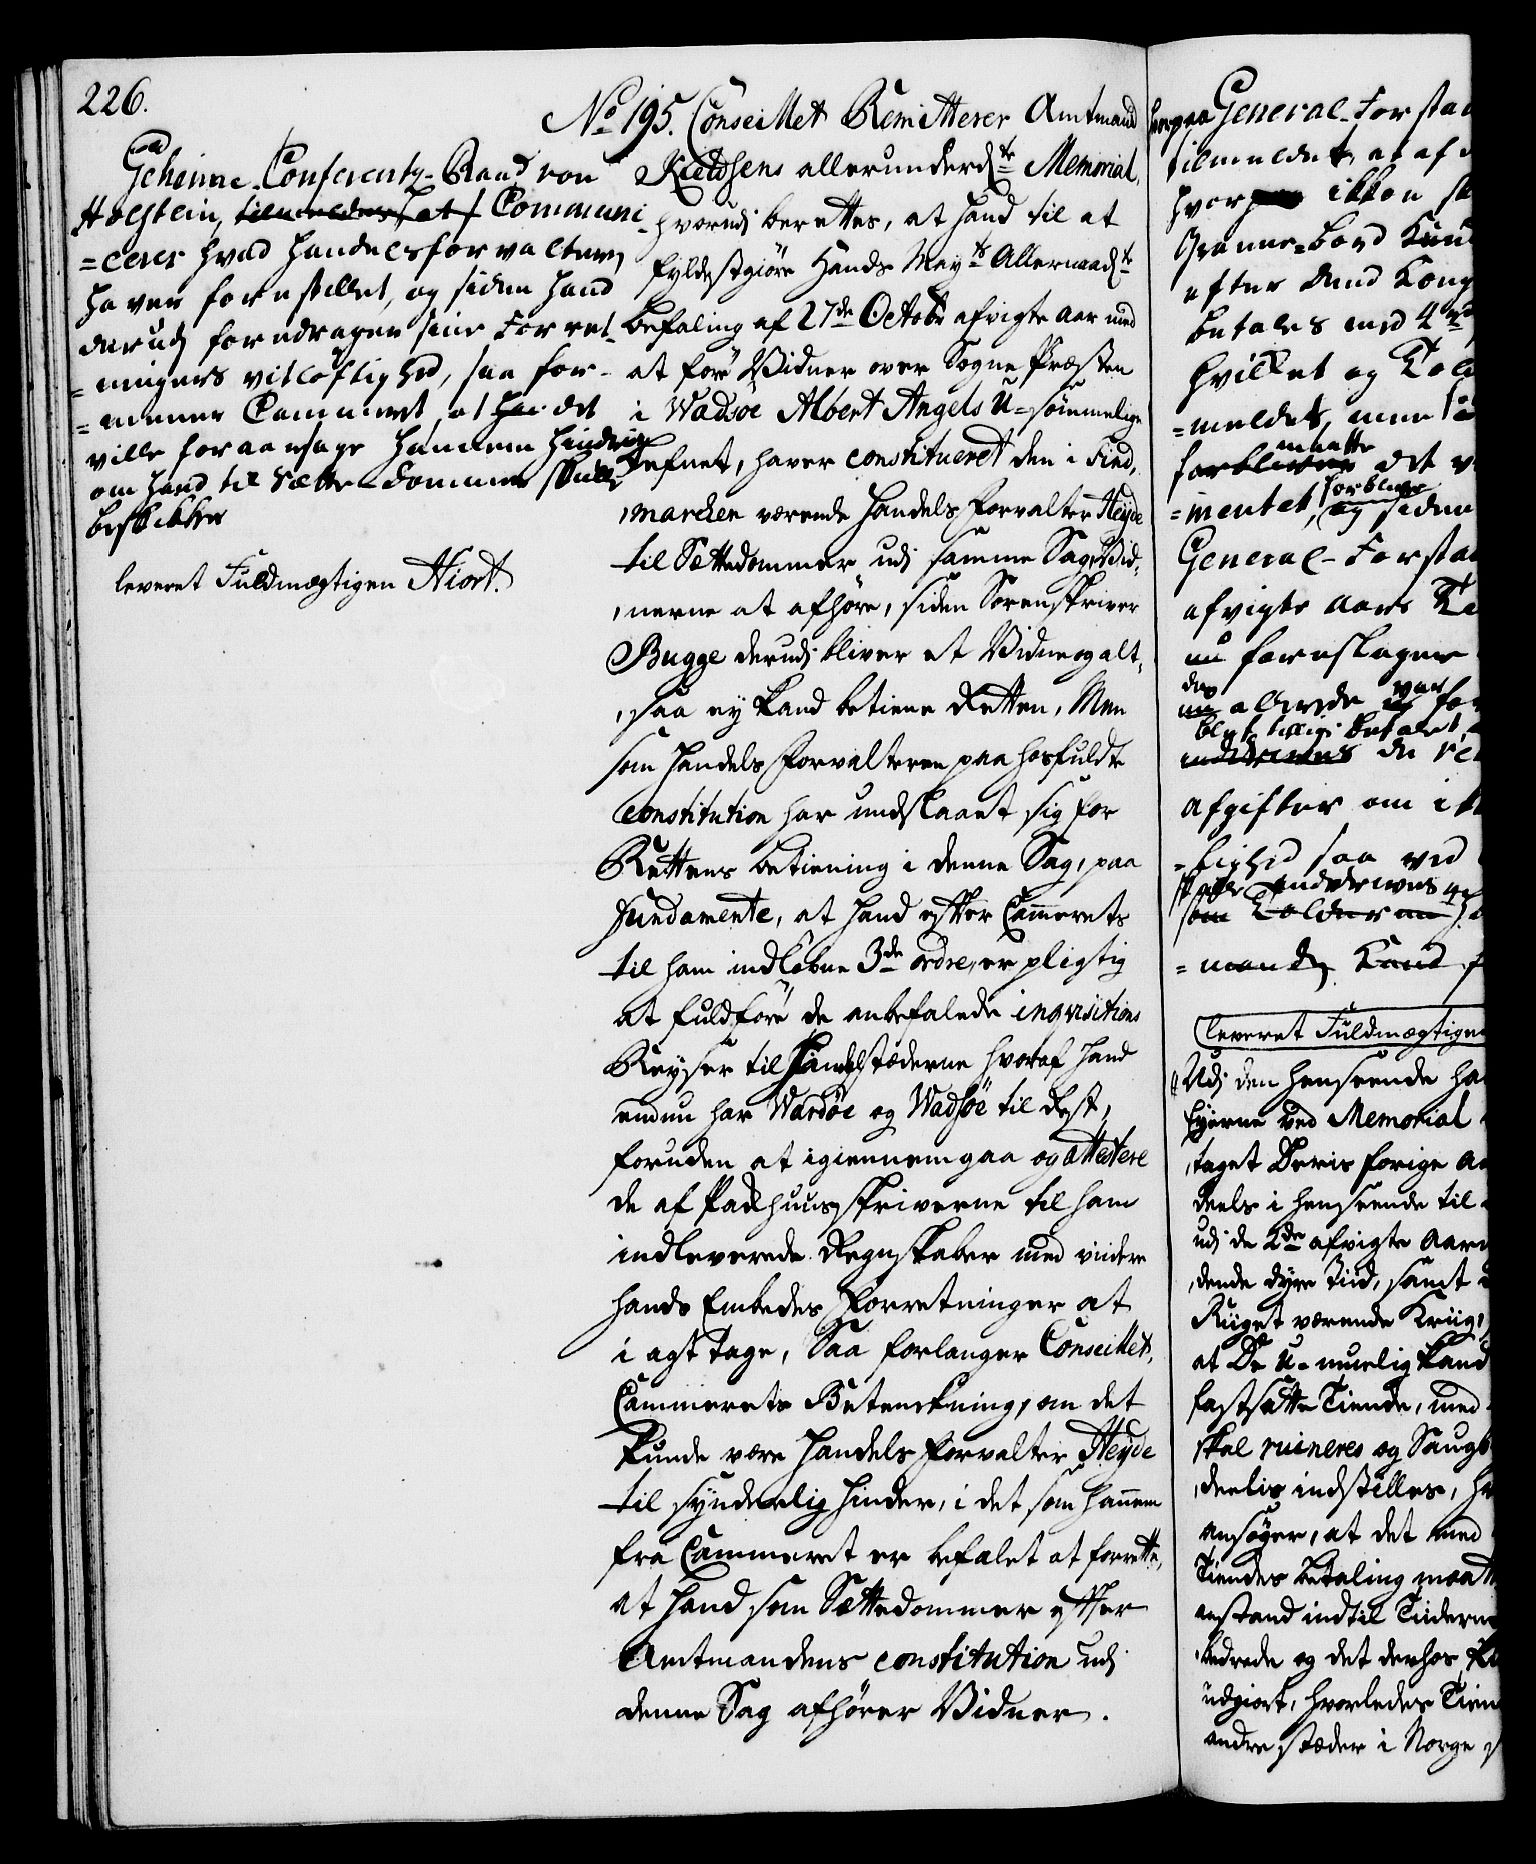 226.
Geheime-Conferentz-Raad von
Holstein, tilmeldes, at Communi
=cerer hvad Handelsforvalteren
haver forestillet, og siden hand
derudj foredrager sine Forret-
=ningers vitløftighed, saa for-
=meener Cammeret at det
ville foraarsage hannem hindring
om hand til Sætte-Dommer skulle
beskikkes
leveret Fuldmægtigen Hiort.
No 195. Conseillet Remitterer Amtmand
Kieldsens allerunderdte Memorial,
hvorudj berettes, at hand til at
fyldestgiøre Hands Mayts Allernaadte
befaling af 27de Octobr afvigte Aar med
at före Vidner over Sogne Præsten
i Wadsøe Albert Angels U-sømmelige
Lefnet, haver constitueret den i Find,
,marcken værende Handels Forvalter Heyde
til Sættedommer udj samme Sag, Vid,
,nerne at afhøre, siden Sorenskriver
Bugge derudj bliver et Vidne og alt,
,saa ey kand betiene Retten, Men
som Handels Forvalteren paa hosfuldte
Constitution har undslaaet sig for
Rettens betiening i denne Sag, paa
Fundamente, at hand efter Cammerets
til ham indløbne 3de ordre, er pligtig
at fuldføre de anbefalede inqvisitions
Reyser til Handelstæderne hvoraf hand
endnu har Wardøe og Wadsøe til Rest,
foruden at igiennemgaa og attestere
de af Pakhuusskriverne til ham
indleverede Regnskaber med videre
hands Embedes Forretninger at
i agt tage, Saa forlanger Conseillet,
Cammerets Betenkning, om det
kunde være Handels Forvalter Heyde
til synderlig hinder, i det som hannem
fra Cammeret er befalet at forrette,
at hand som Sættedommer efter
Amtmandens constitution udj
denne Sag afhører Vidner.
General-Forstad
tilmeldet, at af
hvorpaa ikkon
Grænne-bord
efter dend Kong
betales med 4
hvilket og Told
=meldet, men
maatte
forblive det
forblive
=mentet, og siden
General-Forstad
afvigte Aars
nu foreslager
der var
nu allerede for
blet tillige betalet
inddrives de
afgifter om
=lighed saa ved
inddrives
som Tolderne
=mand kand
leveret Fuldmægtigen
Udj den henseende
Eyerne ved Memorial
,taget Deris forige
deels i henseende til
udj de 2de afvigte Aar
,dende dyre Tiid, samt
Riiget værende Kriig,
at De U-muelig kand
fastsatte Tiende, med
skal ruineres og Saug
,deelis indstilles,
ansøger, at det med
Tiendes betaling maatte
anstand indtil Tiiderne
,bedrede og det derhos
udgiort, hvorledes
andre stæder i Norge